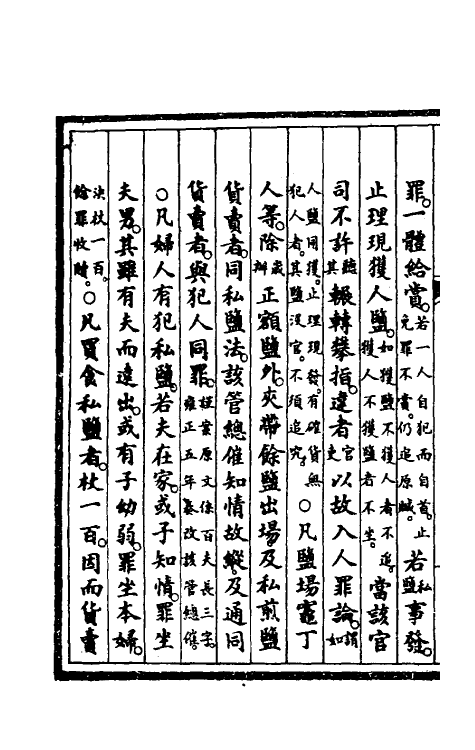 罪。一體給賞。若一人自犯而自首。止免罪不賞。仍追原贓。若私鹽事發。
止理現獲人鹽。如獲鹽不獲人者不追。獲人不獲鹽者不坐。當該官
司不許聽其輾轉攀指。違者官吏以故入人罪論。謂如
人鹽同獲。止理現發。有確貨無犯人者。其鹽沒官。不須追究。○凡鹽場竈丁
人等。除歲辦正額鹽外。夾帶餘鹽出場。及私煎鹽
貨賣者。同私鹽法。該管總催知情故縱。及通同
貨賣者。與犯人同罪。謹案原文係百夫長三字。雍正五年纂改該管總催。
○凡婦人有犯私鹽。若夫在家。或子知情。罪坐
夫男。其雖有夫而遠出。或有子幼弱。罪坐本婦。
決杖一百。餘罪收贖。○凡買食私鹽者。杖一百。因而貨賣